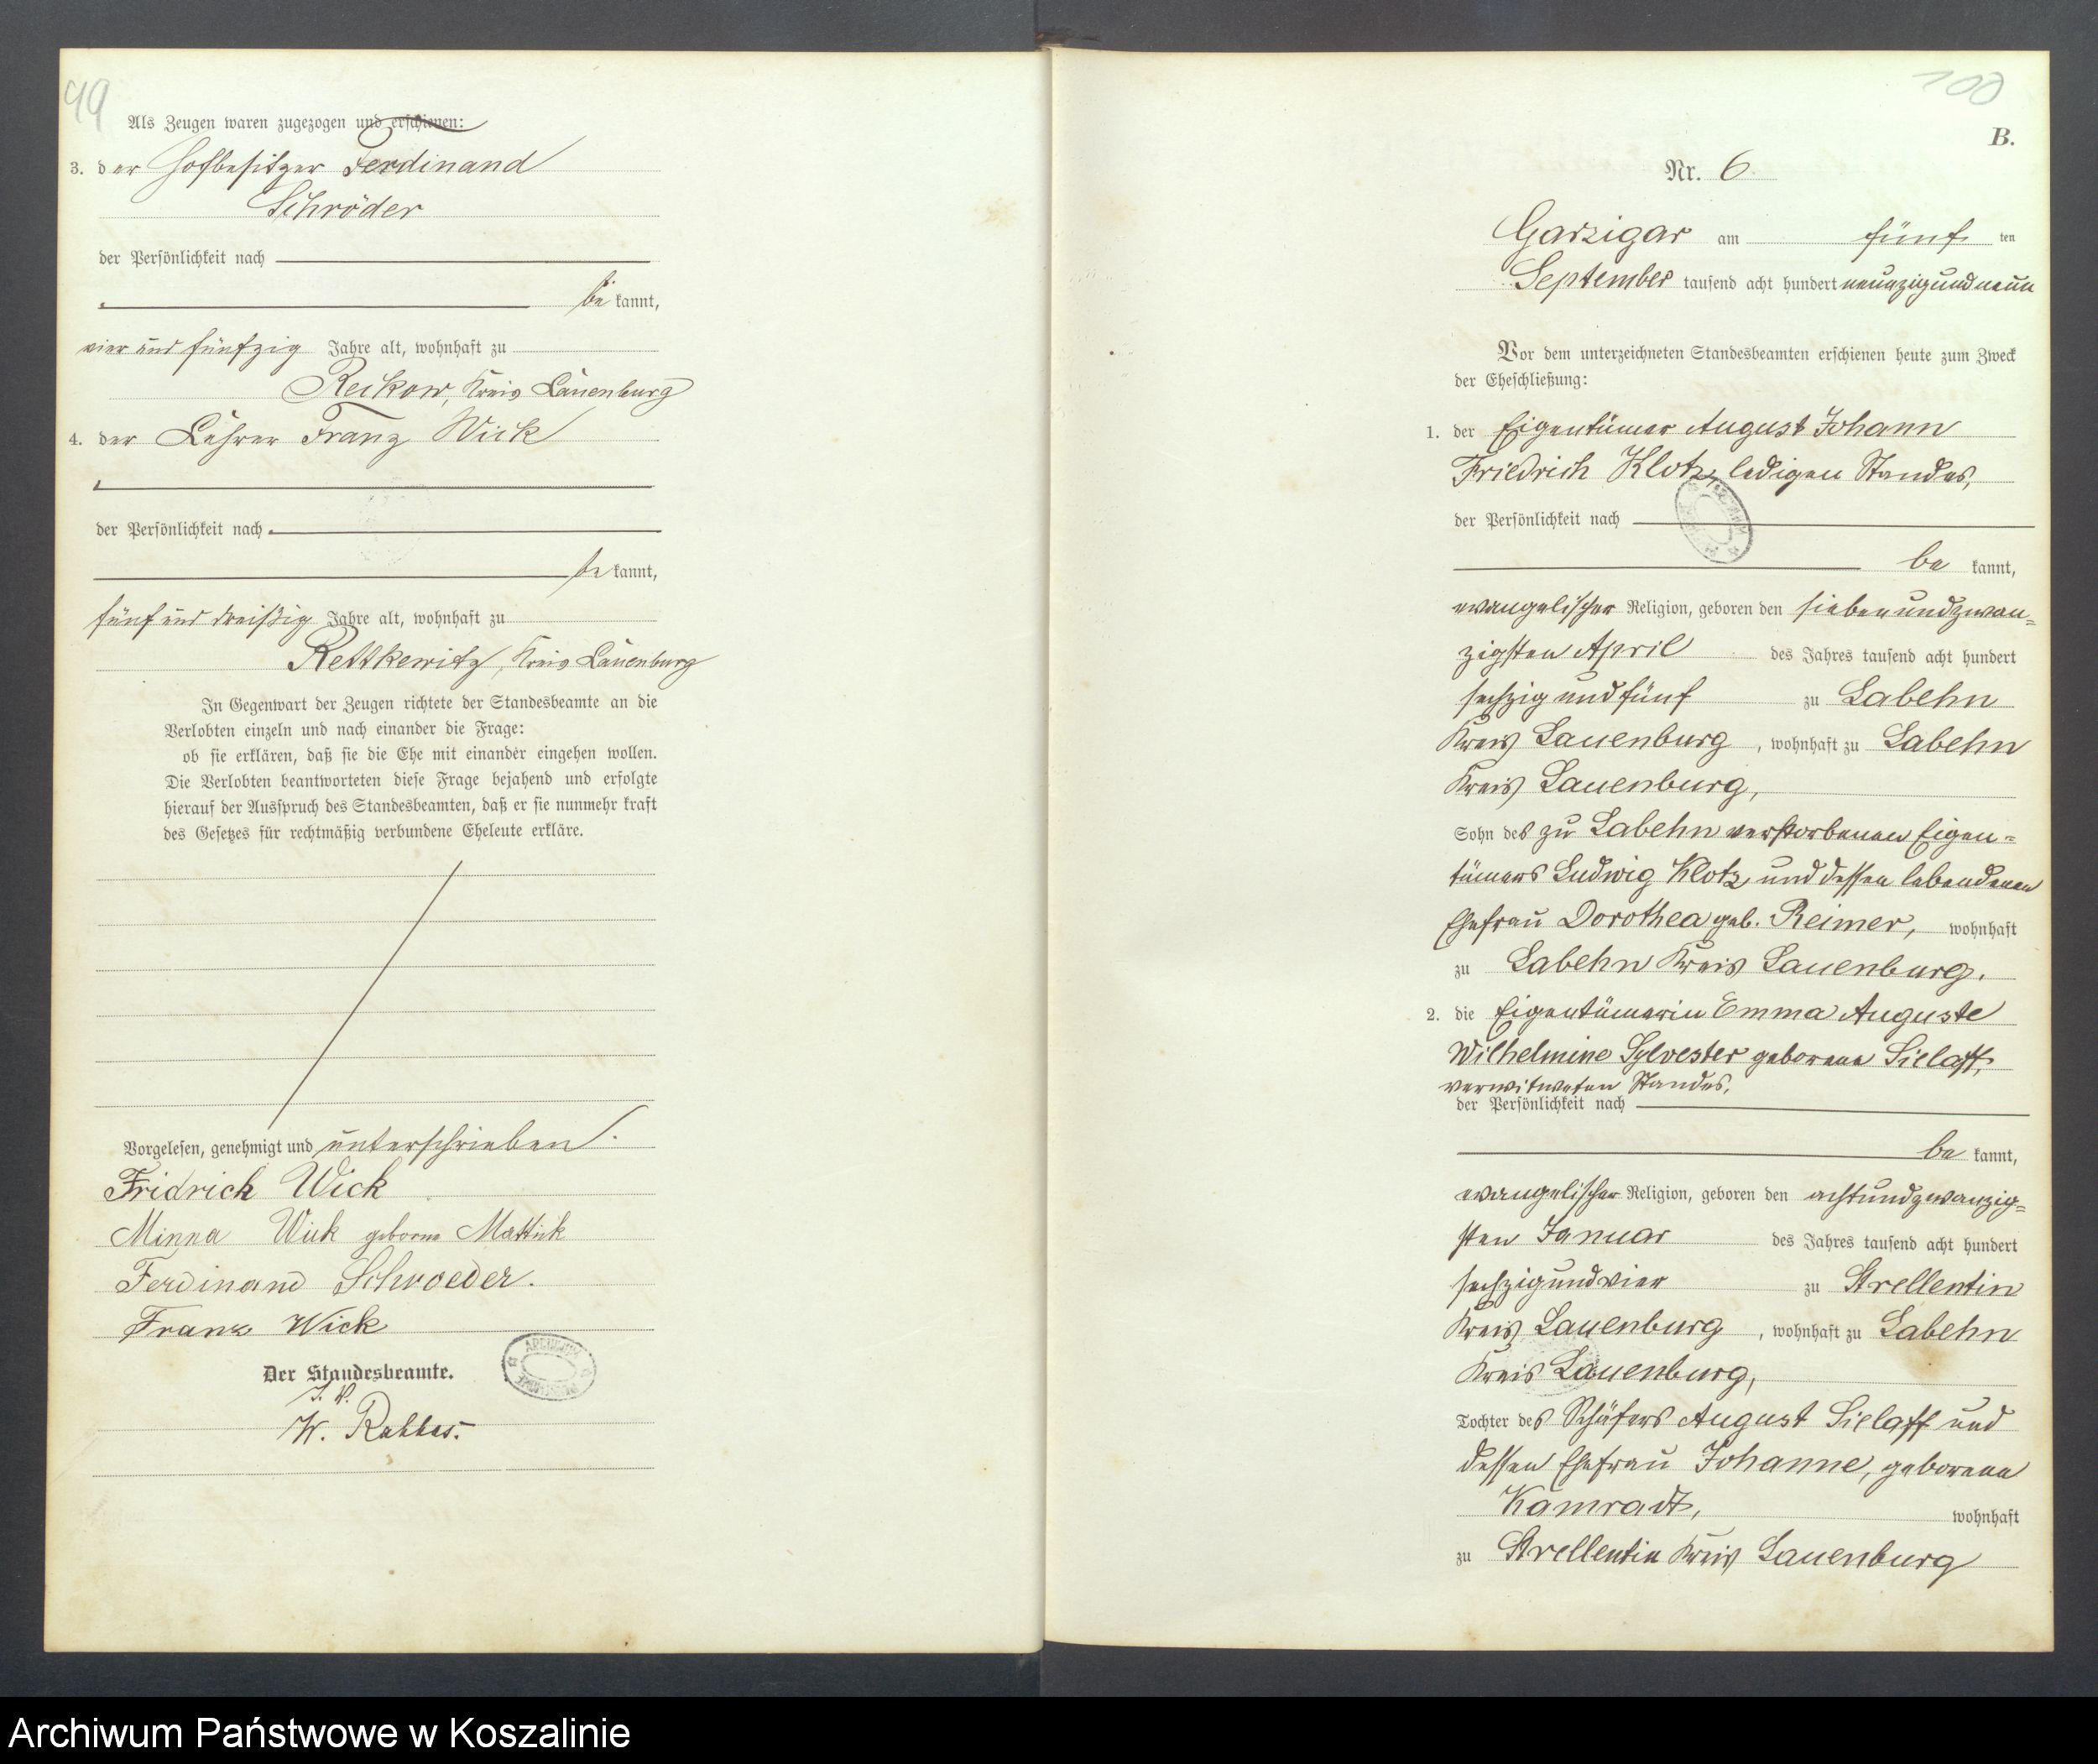 99
Als Zeugen waren zugezogen und erschienen:
3. der Hofbesitzer Ferdinand
Schröder
der Persönlichkeit nach
bekannt,
vier und fünfzig Jahre alt, wohnhaft zu
Reckow, Kreis Lauenburg
4. der Lehrer Franz Wick
der Persönlichkeit nach
bekannt,
fünf und dreißig Jahre alt, wohnhaft zu
Rettkewitz, Kreis Lauenburg
In Gegenwart der Zeugen richtete der Standesbeamte an die
Verlobten einzeln und nach einander die Frage:
ob sie erklären, daß sie die Ehe mit einander eingehen wollen.
Die Verlobten beantworteten diese Frage bejahend und erfolgte
hierauf der Ausspruch des Standesbeamten, daß er sie nunmehr kraft
des Gesetzes für rechtmäßig verbundene Eheleute erkläre.
Vorgelesen, genehmigt und unterschrieben.
Fridrich Wick
Minna Wick geborne Mattick
Ferdinand Schroeder.
Franz Wick
Der Standesbeamte.
J. V.
W.
100
B.
Nr. 6
Garzigar am fünften
September tausend acht hundert neunzig und neun
Vor dem unterzeichneten Standesbeamten erschienen heute zum Zweck
der Eheschließung:
1. der Eigentümer August Johann
Friedrich Klotz, ledigen Standes,
der Persönlichkeit nach
bekannt,
evangelischer Religion, geboren den siebenundzwan=
zigsten April des Jahres tausend acht hundert
sechzig und fünf zu Labehn
Kreis Lauenburg, wohnhaft zu Labehn
Kreis Lauenburg,
Sohn des zu Labehn verstorbenen Eigen=
tümers Ludwig Klotz und dessen lebendenen
Ehefrau Dorothea geb. Reimer, wohnhaft
zu Labehn Kreis Lauenburg.
2. die Eigentümerin Emma Auguste
Wilhelmine Sylvester geborene Sielaff,
verwitweten Standes,
der Persönlichkeit nach
bekannt,
evangelischer Religion, geboren den achtundzwanzig=
sten Januar des Jahres tausend acht hundert
sechzig und vier zu Strellentin
Kreis Lauenburg, wohnhaft zu Labehn
Kreis Lauenburg,
Tochter des Schäfers August Sielaff und
dessen Ehefrau Johanne, geborene
Kamradt, wohnhaft
zu Strellentin Kreis Lauenburg
Archiwum Państwowe w Koszalinie